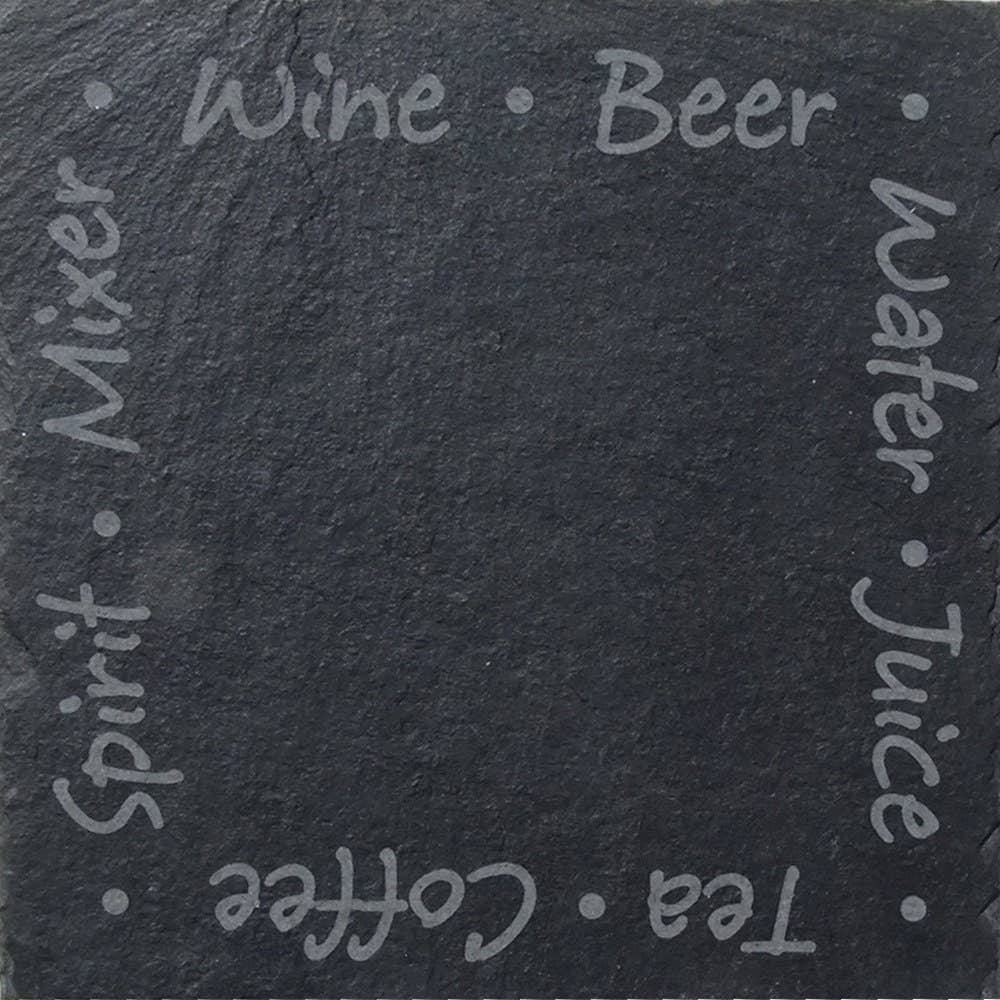 • Wine • Beer •
Water • Juice •
Tea • Coffee •
Spirit • Mixer